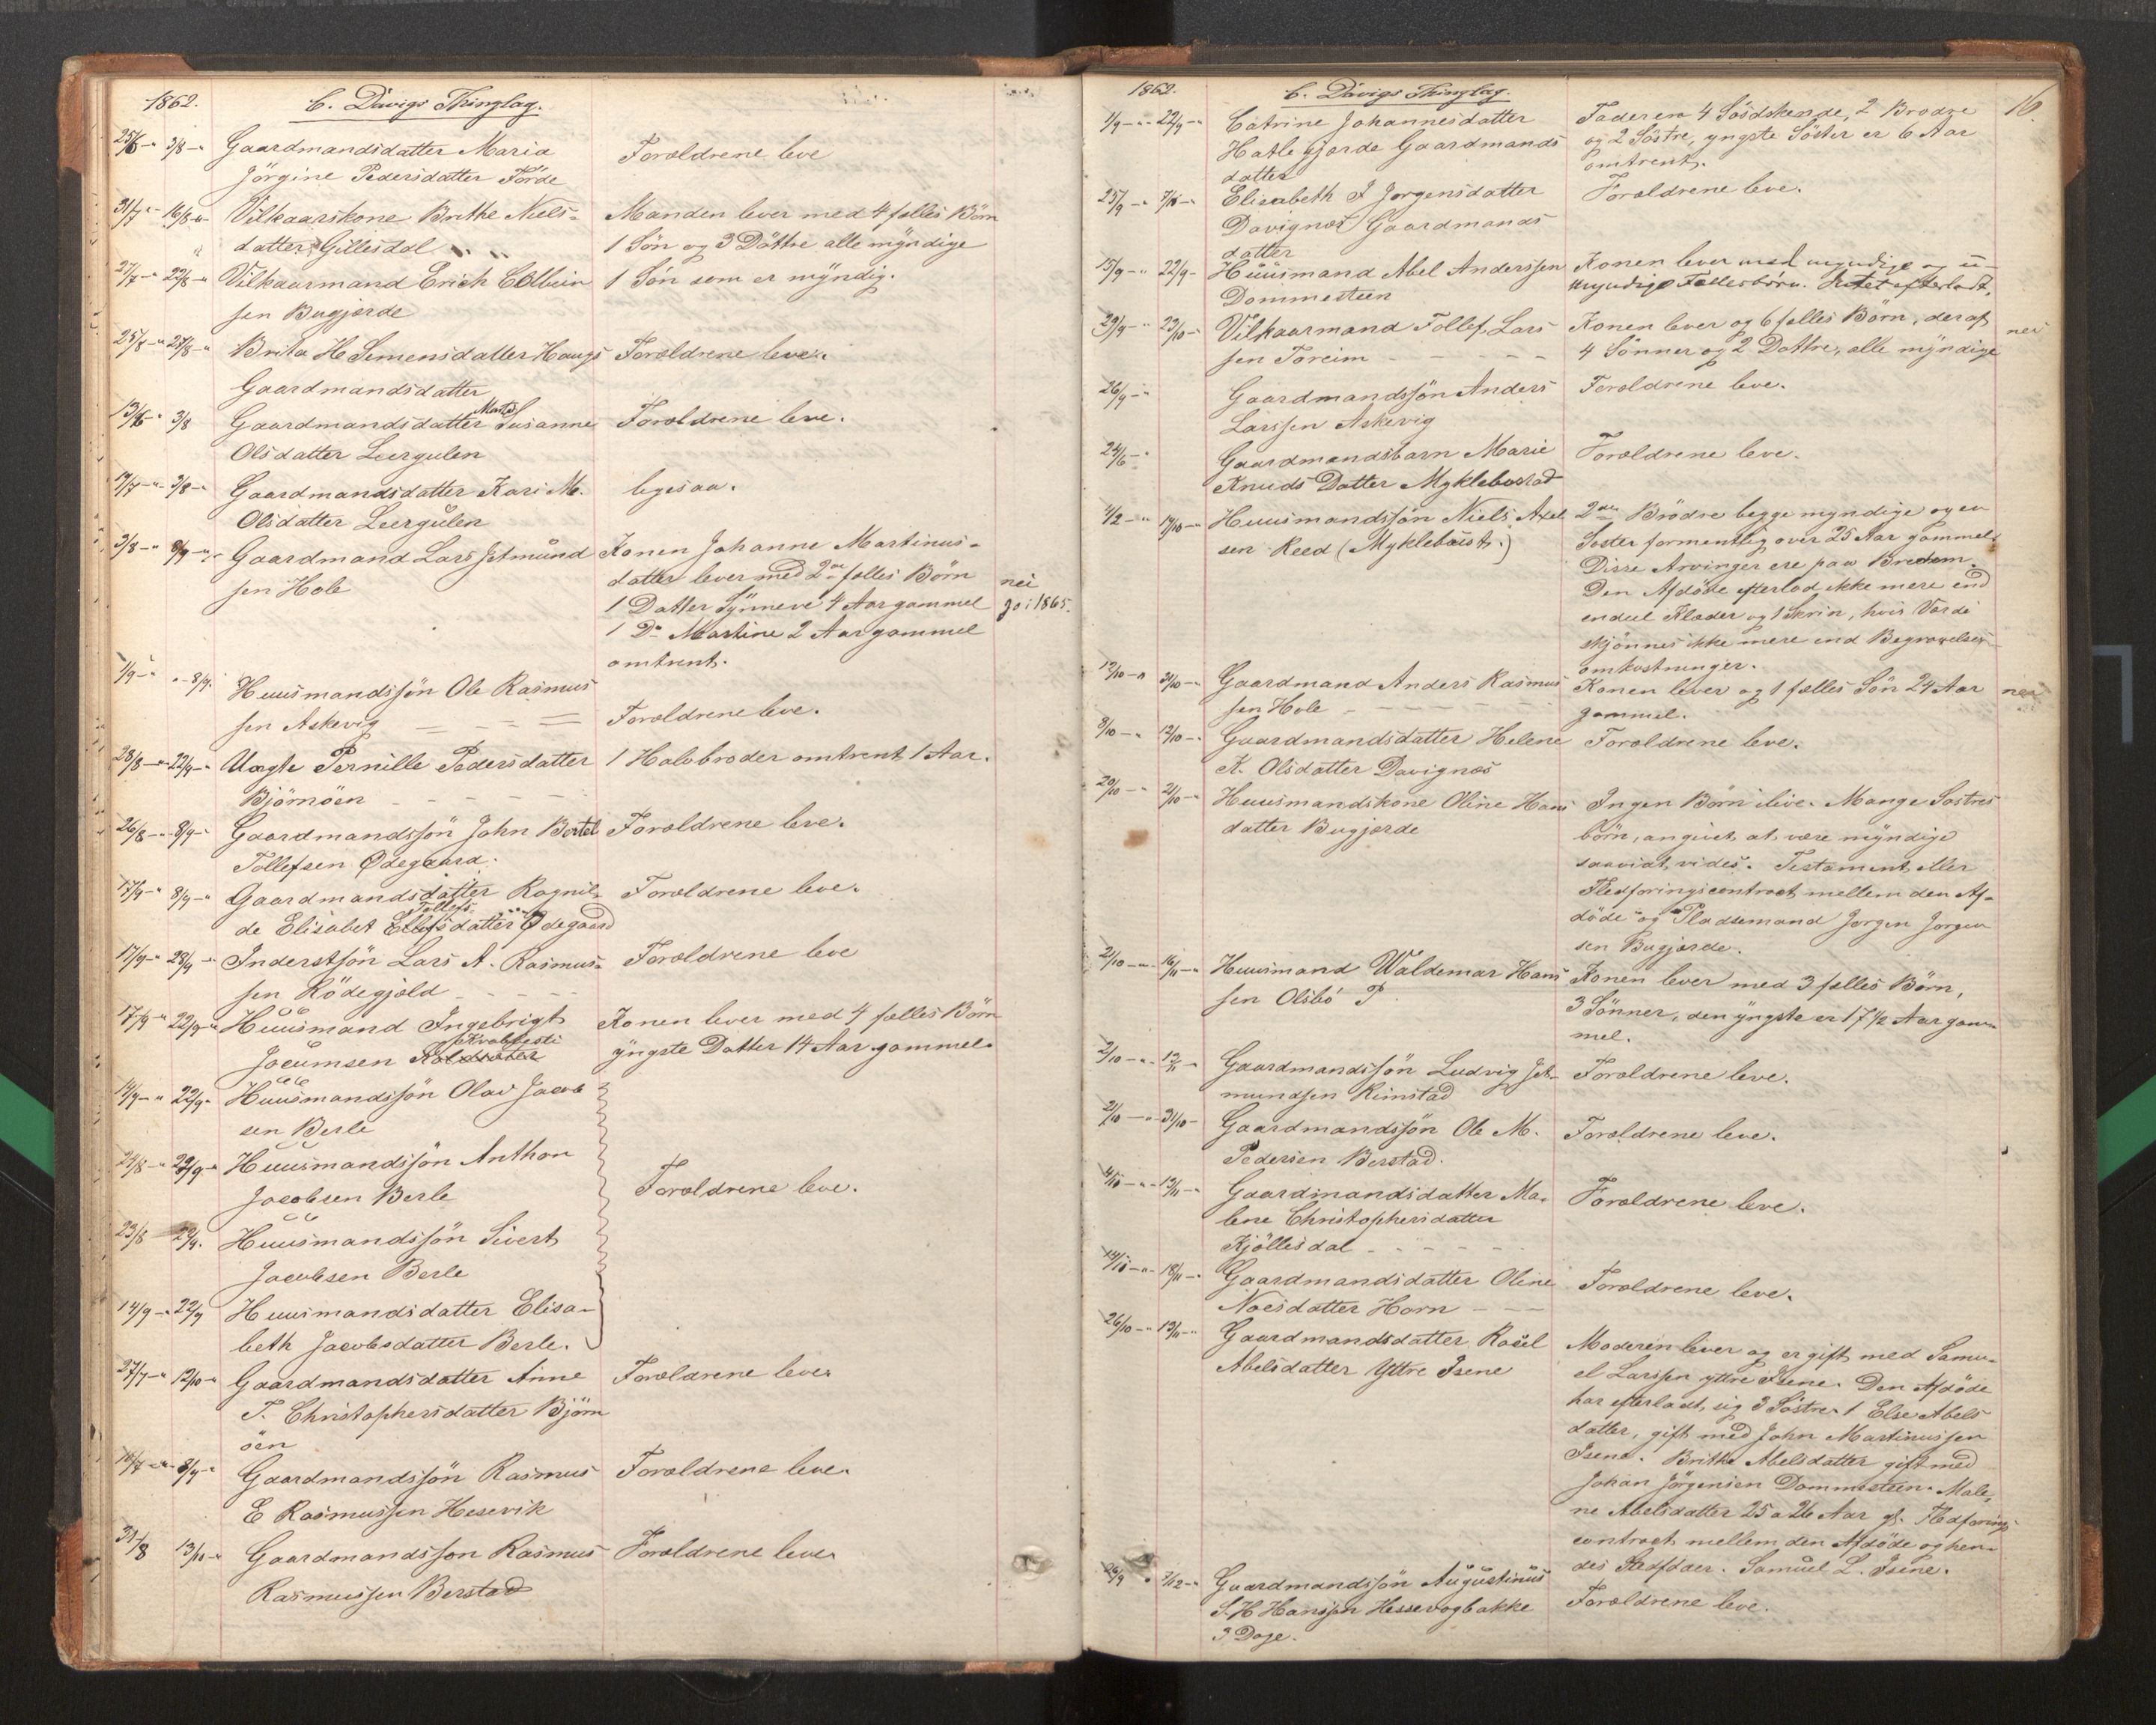 1862. C. Davigs Thinglag.
25/6 -"- 3/8 -"- Gaardmandsdatter Maria Forældrene leve
Jörgine Pedersdatter Förde
31/7 -"- 16/8 -"- Vilkaarskone Brithe Niels- Manden lever med 4 fælles Börn
datter Gillesdal 1 Sön og 3 Döttre alle myndige
27/7 -"- 22/8 -"- Vilkaarmand Erich 1 Sön som er myndig.
sen Bugjerde
25/8 -"- 28/8 -"- Brita H Simensdatter Haugs Forældrene leve.
Gaardmandsdatter
3/8 Gaardmandsdatter Susanne Forældrene leve.
Olsdatter Leergulen
3/8 -"- Gaardmandsdatter Kari M. ligesaa.
Olsdatter Leergulen
3/8 -"- 8/9 -"- Gaardmand Lars Jetmund Konen Johanne Martinus-
sen Hole datter lever med 2de fælles Börn nei
1 Datter Synneve 4 Aar gammel jo: 1865.
1 Do Martine 2 Aar gammel
omtrent.
1/9 -"- 8/9. Huusmandssön Ole Rasmus
sen Askevig Forældrene leve.
28/8 -"- 22/9 -"- Uægte Pernille Pedersdatter 1 Halvbroder omtrent 1 Aar.
Björnöen
26/8 -"- 8/9 -"- Gaardmandssön John Bertel Forældrene leve.
Tollefsen Ødegaard.
8/9 -"- Gaardmandsdatter Ragnil- Forældrene leve.
Tollefs
de Elisabet Ellefsdatter Ødegaard
17/9 -"- 28/9 -"- Inderstsön Lars A. Rasmus- Forældrene leve
sen Rödegjeld
17/9 -"- 22/9 -"- Huusmand Ingebrigt Konen lever med 4 fælles Börn
Jocumsen yngste Datter 14 Aar gammel.
14/9 -"- 22/9 -"- Huusmandssön Olai Jacob
sen Berle
24/8 -"- 22/9 -"- Huusmandssön Anthon
Jacobsen Berle Forældrene leve.
23/8 22/9. Huusmandssön Sivert
Jacobsen Berle
14/9 -"- 22/9 Huusmandsdatter Elisa-
beth Jacobsdatter Berle.
27/7 -"- 12/10 -"- Gaardmandsdatter Anne Forældrene leve.
T. Christophersdatter Björn
öen
8/9 -"- Gaardmandssön Rasmus Forældrene leve.
E Rasmussen Hesevik
31/8 13/10 -"- Gaardmandsson Rasmus Forældrene leve.
Rasmussen Berstad
1862. C. Davigs Thinglag. 16.
1/9 -"- 22/9 -"- Catrine Johannesdatter Faderen 4 Södskende, 2 Brodre
Hatlegjerde Gaardmands og 2 Söstre, yngste Söster er 6 Aar
datter omtrent.
25/9 -"- Elisabeth J Jorgensdatter Forældrene leve.
Davignæs Gaardmands
datter
15/9 -"- 22/9 - Huusmand Abel Anderssen Konen lever med myndige og u-
Dommesteen myndige Fællesbörn. Intet efterladt.
29/9 -"- 23/10 -"- Vilkaarmand Tollef Lars Konen lever og 6 fælles Börn, deraf nei
sen Toreim 4 Sönner og 2 Dottre, alle myndige
26/9 -"- Gaardmandssön Anders Forældrene leve.
Larssen Askevig
24/6 -"- Gaardmandsbarn Marie Forældrene leve.
Knuds Datter Myklebostad
4/2 -"- 19/10 -"- Huusmandssön Niels Axel 2de Brödre begge myndige og en
sen Reed (Myklebust.) Soster formentlig over 25 Aar gammel.
Disse Arvinger ere paa Bredem.
Den Afdöde efterlod ikke mere end
endeel Klæder og 1 Skrin, hvis Værdi
skjönnes ikke mere end Begravelses
omkostninger.
12/10 -"- 31/10 -"- Gaardmand Anders Rasmus Konen lever og 1 fælles Sön 24 Aar nei
sen Hole gammel.
8/10 -"- 12/10 -"- Gaardmandsdatter Helene Forældrene leve.
K. Olsdatter Davignæs
20/10 -"- 21/10 -"- Huusmandskone Oline Hans Ingen Börn ilive. Mange Söstres
datter Bugjerde börn, angivet at være myndige
saavidt vides. Testament eller
Fledföringscontract mellem den Af-
döde og Pladsemand Jorgen Jorgen
sen Bugjerde.
2/10 -"- 16/11 -"- Huusmand Waldemar Hans Konen lever med 3 fælles Börn,
sen Olsbö P. 3 Sönner, den yngste er 17 1/2 Aar gam-
mel.
2/10 -"- Gaardmandssön Ludvig Jet- Forældrene leve.
mundsen Rimstad
21/10 -"- 31/10 - Gaardmandssön Ole M. Forældrene leve.
Pedersen Berstad.
4/10 -"- 13/11 -"- Gaardmandsdatter Ma- Forældrene leve.
lene Christophersdatter
Kjöllesdal
14/10 -"- 18/11 -"- Gaardmandsdatter Oline Forældrene leve.
Noesdatter Horn
26/10 -"- 13/11 -"- Gaardmandsdatter Rasel Moderen lever og er gift med Samu-
Abelsdatter Yttre Isene el Larssen yttre Isene. Den Afdöde
har efterladt sig 3 Söstre. 1 Else Abels
datter, gift med John Martinussen
Isene. Brithe Abelsdatter gift med
Johan Jörgensen Dommesteen. Male-
ne Abelsdatter 25 a 26 Aar gl. Fledförings
contract mellem den Afdöde og hen-
des Stedfader. Samuel L. Isene.
26/9 2/12 -"- Gaardmandssön Augustinus Forældrene leve.
S. H Hanssen Hessevogbakke
3 Dage.